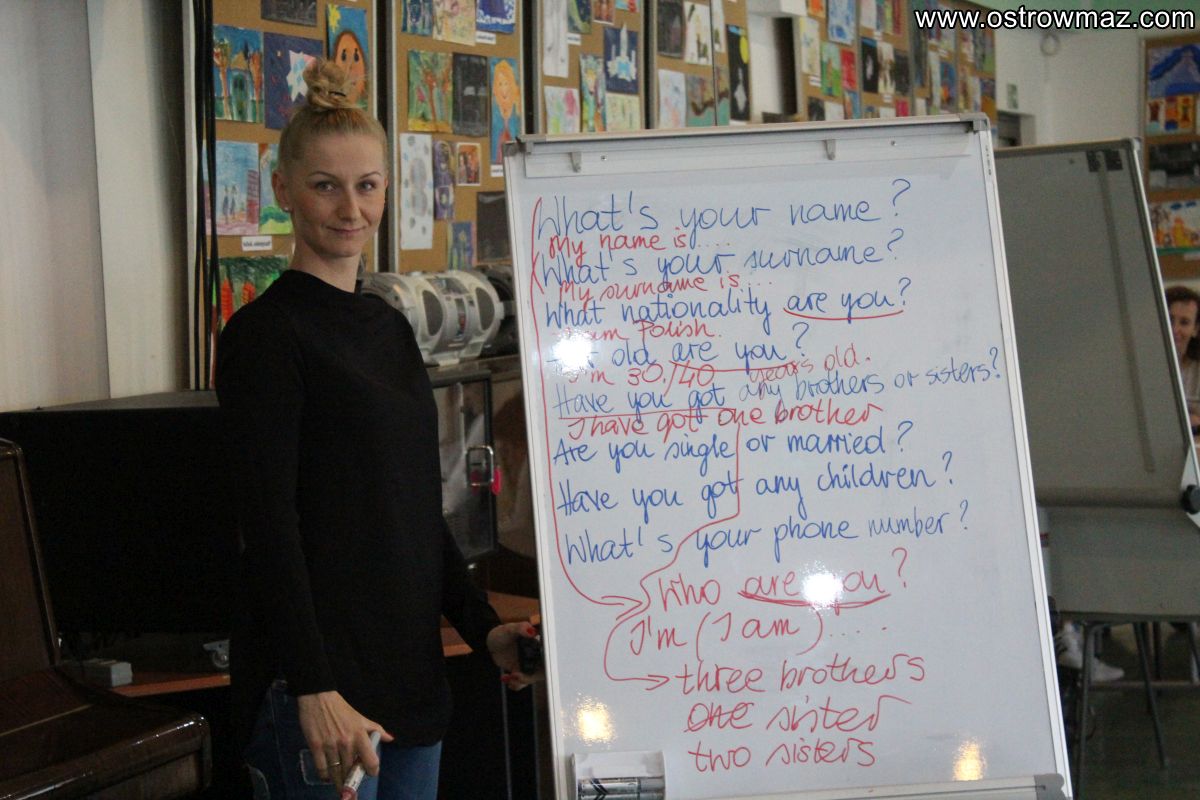 www.ostrowmaz.com
What's your name?
My name is....
What's your surname?
My surname is....
What nationality are you?
I'm Polish.
old are you?
I'm 30./40 years old.
Have you got any brothers or sisters?
I have got one brother
Are you single or married?
Have you got any children?
What's your phone number?
Who are you?
I'm (I am).....
three brothers
one sister
two sisters